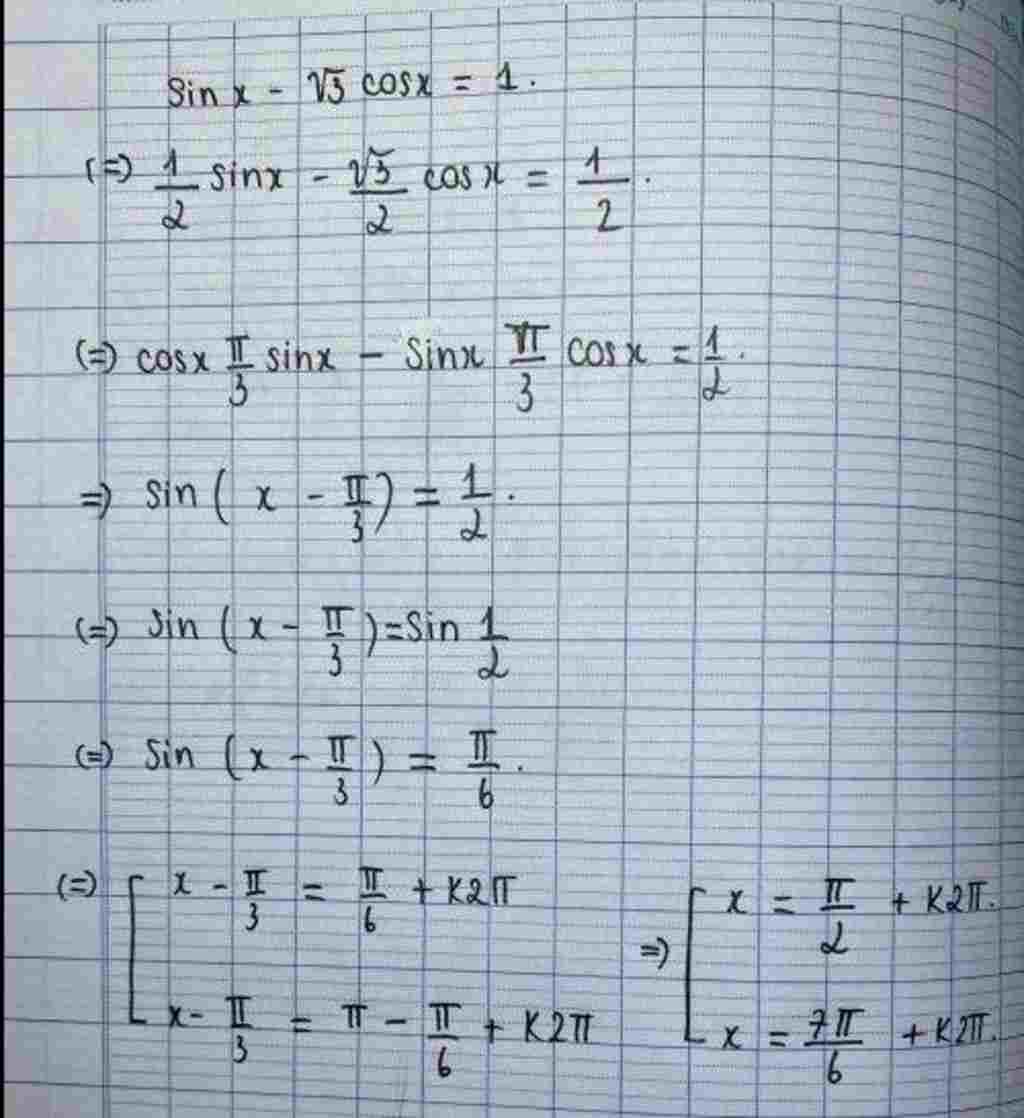 sin x - √3 cosx = 1.
(=) 1/2 sinx - √3/2 cosx = 1/2.
(=) cosx π/3 sinx - sinx π/3 cosx = 1/2.
=) sin ( x - π/3 ) = 1/2.
(=) sin ( x - π/3 ) = sin 1/2
(=) sin ( x - π/3 ) = π/6.
(=) [ x - π/3 = π/6 + K2π
x - π/3 = π - π/6 + K2π
=) [ x = π/2 + K2π.
x = 7π/6 + K2π.